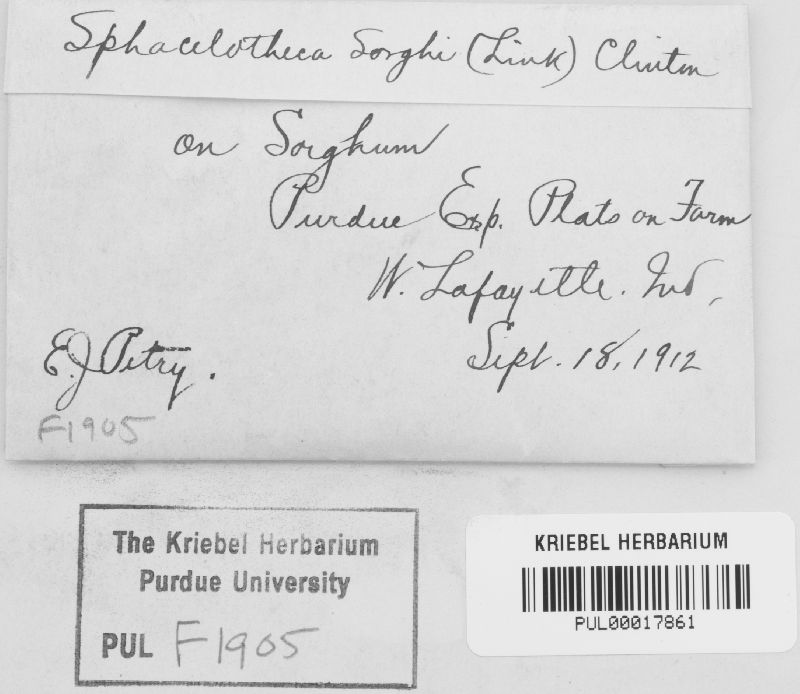 Sphacelotheca Sorghi (Link) Clinton
on Sorghum
Purdue Exp. Plats on Farm
W. Lafayette. Ind,
Sept. 18, 1912
E.J Petry.
F1905
The Kriebel Herbarium
Purdue University
PUL F1905
KRIEBEL HERBARIUM
PUL00017861